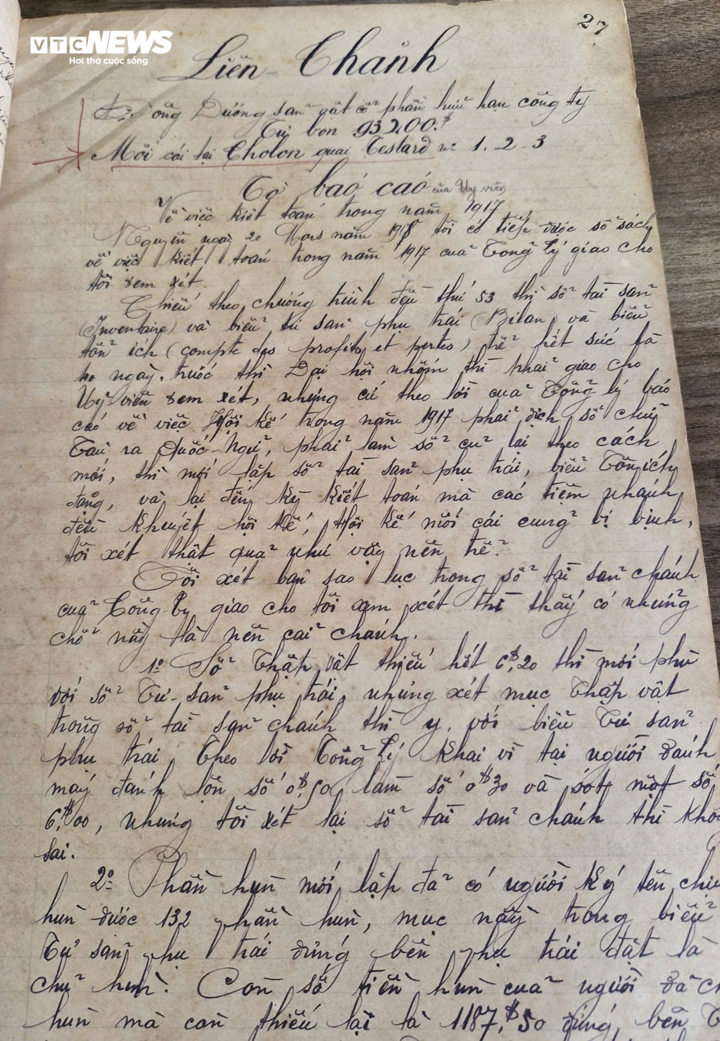 VTC NEWS
Hơi thở cuộc sống
27
Liên-Thành
Đông Dương sản vật cổ phần hữu hạn công ty
Tư bổn 93200.$
Môn cái tại Cholon quai Testard no 1.2-3
Tờ báo cáo của Ủy viên
Về việc kiết toán trong năm 1917
Nguyên ngày 20 Mars năm 1918 tôi có tiếp được sổ sách
về việc kiết toán trong năm 1917 của Tổng lý giao cho
tôi xem xét.
Chiếu theo chương trình đầu thứ 53 thì sổ tài sản
(Inventaire) và biểu tư sản phụ trái (Bilan) và biểu
tổn ích (compte des profits et pertes) trễ hết sức là
ngày, trước thì Đại hội nhóm thì phải giao cho
Ủy viên xem xét, nhưng cứ theo lời của Tổng lý báo
cáo về việc Hội kế trong năm 1917 phải dịch sổ chữ
Tàu ra Quốc-Ngữ, phải làm sổ cũ lại theo cách
mới, thì mới lập sổ tài sản phụ trái, biểu Tổn ích
đặng, và lại đến kỳ kiết toán mà các tiệm nhánh
đều khuyết hội kế, Hội kế môn cái cũng bị bịnh,
tôi xét thật quả như vậy nên trễ.
Tôi xét bản sao lục trong sổ tài sản chánh
của Công-Ty giao cho tôi xem xét thì thấy có những
chỗ nầy là nên cải chánh.
1o Số Thập vật thiếu hết 6$,20 thì mới phù
với số Tư-sản phụ trái, nhưng xét mục Thập vật
trong sổ tài sản chánh thì y với biểu Tư sản
phụ trái. Theo lời Tổng Lý khai vì tại người đánh
máy đánh lộn số 0$,50 làm số 0$30 và sót một số
6,$00, nhưng tôi xét lại sổ tài sản chánh thì khô
sai.
2o Phần hùn mới lập đã có người ký tên chịu
hùn được 132 phần hùn, mục nầy trong biểu
Tư sản phụ trái đứng bên phụ trái đặt là
chủ hùn. Còn số tiền hùn của người đã ch
hùn mà còn thiếu lại là 1187,$50 đứng bên T